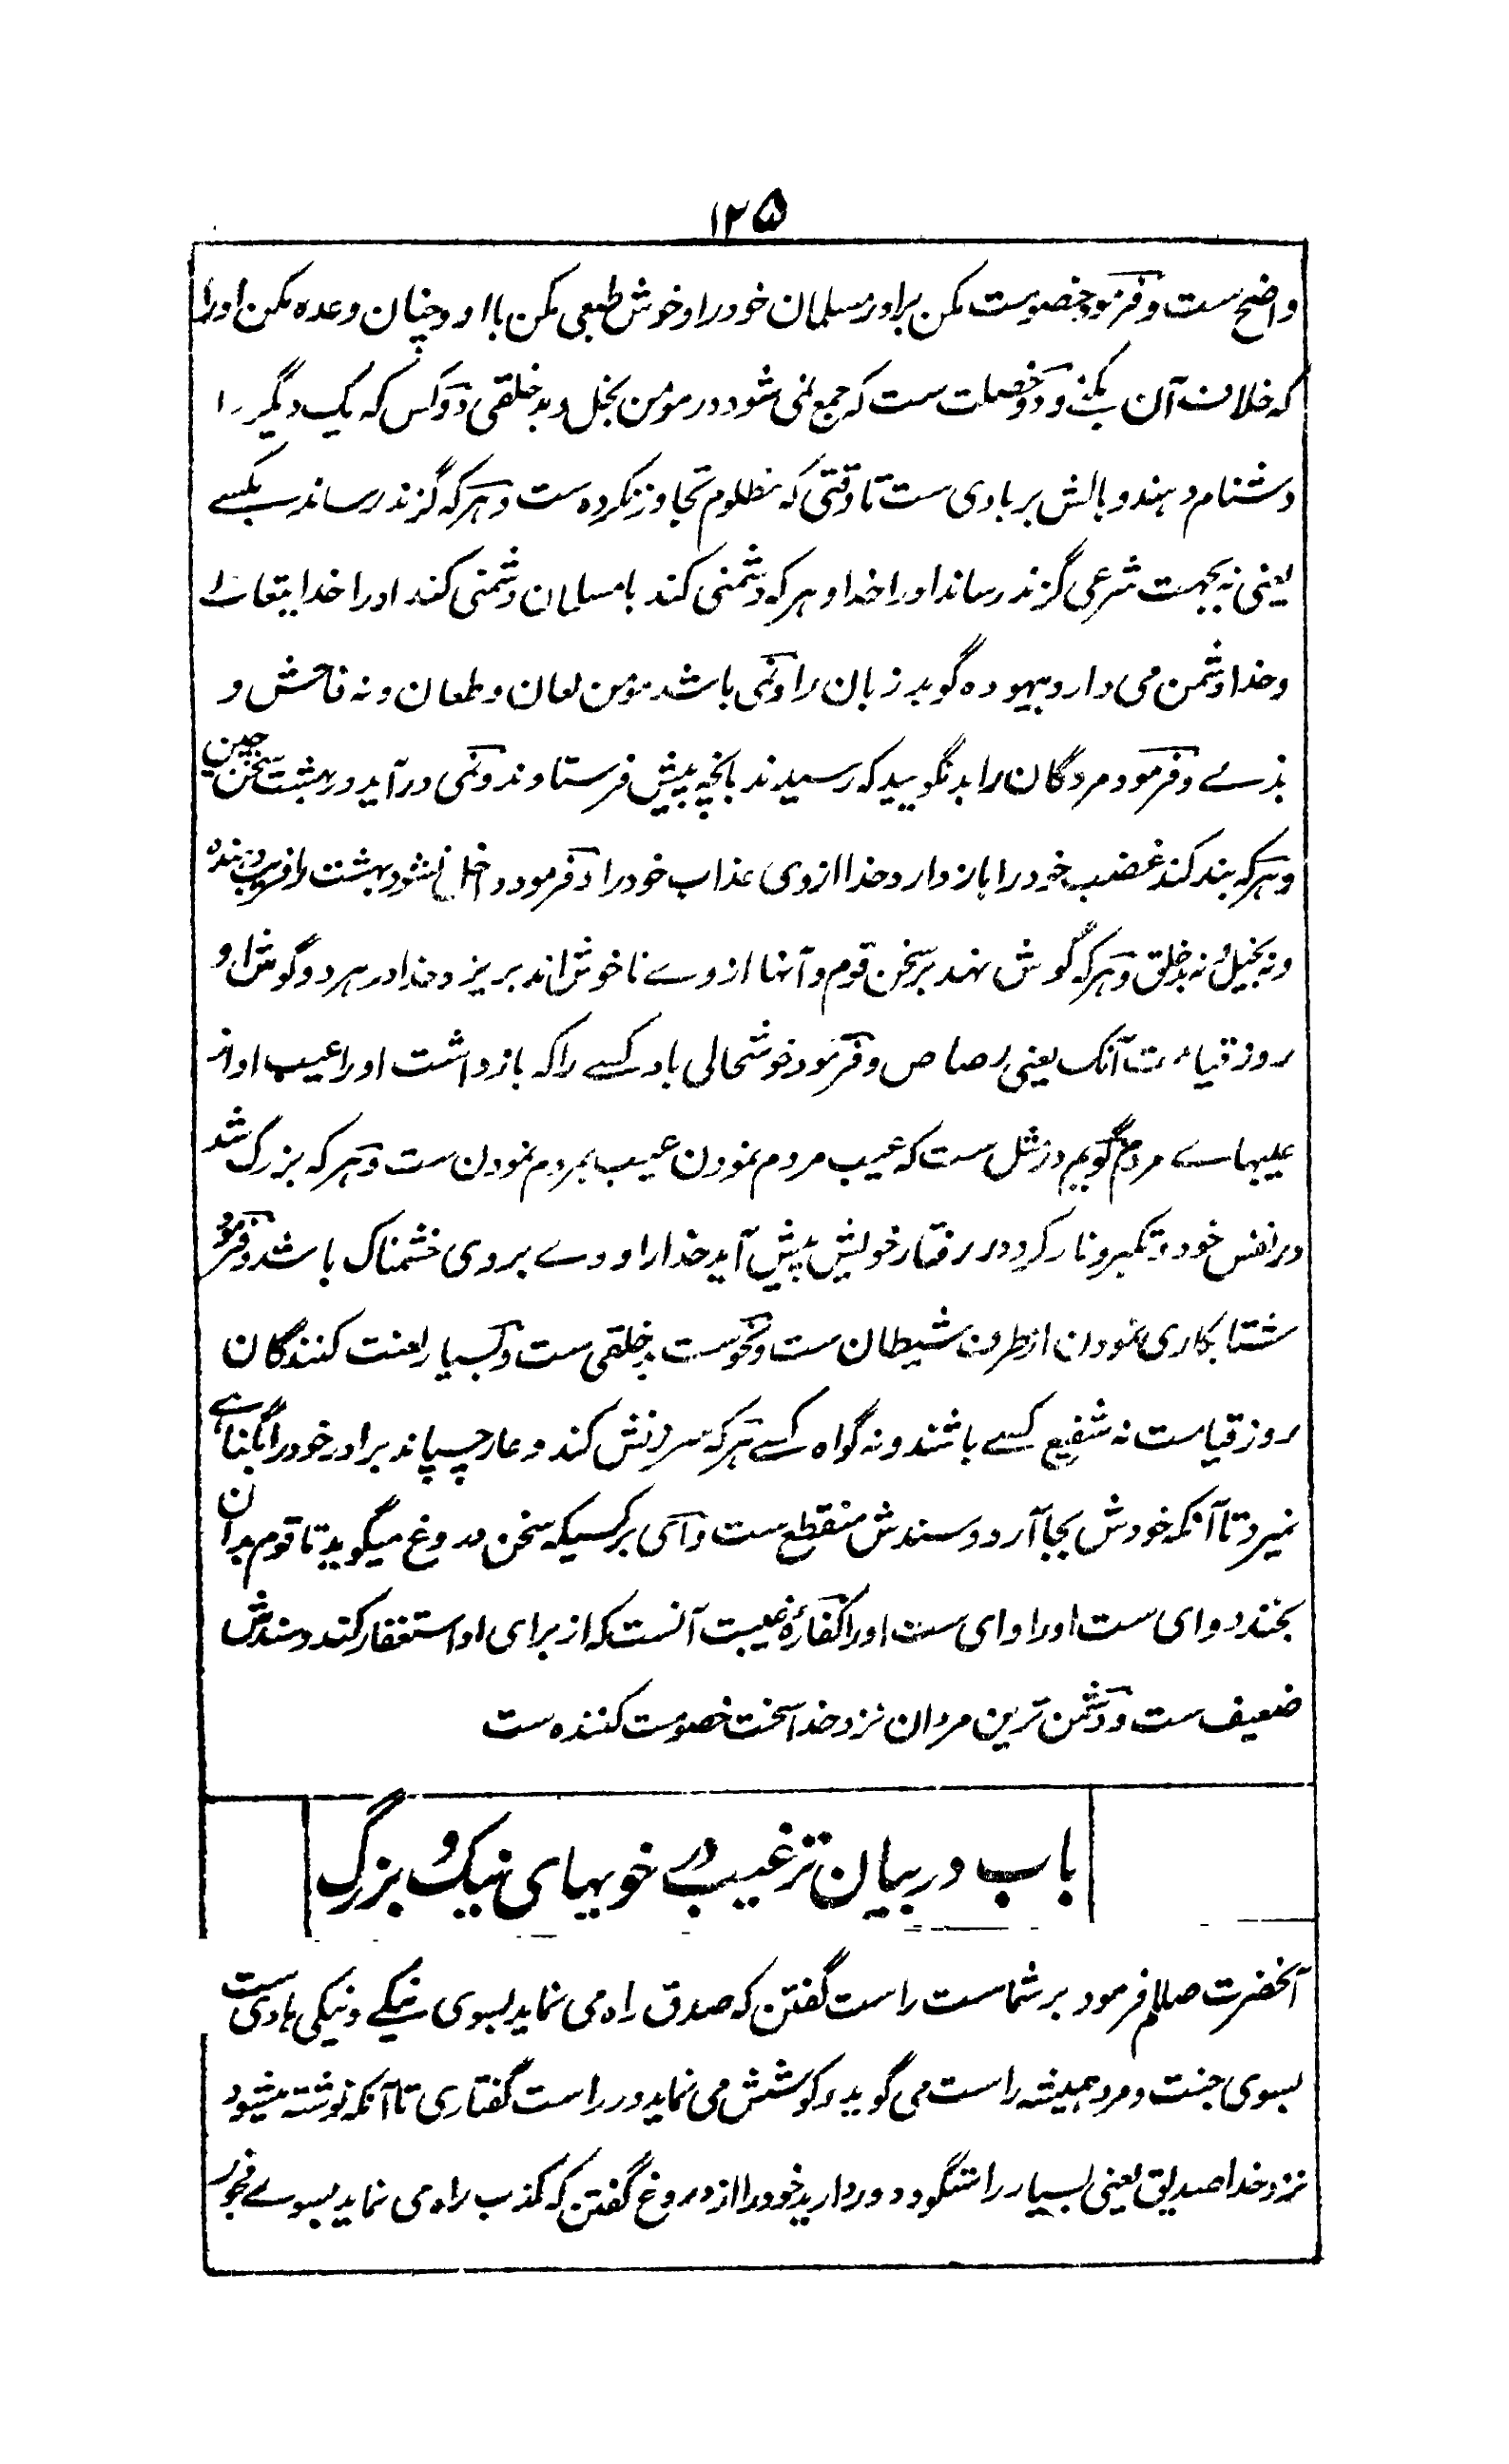 ۱۲۵
واضح ست و فرمود خصومت مکن برادر مسلمان خود را و خوش طبعی مکن با او و چنان وعده مکن او را
که خلاف آن بکنی و دو خصلت ست که جمع نمی شود در مومن بخل و بد خلقی و دو کس که یک دیگر را
دشنام دهند وبالش بر بادی ست تا وقتی که مظلوم تجاوز نکرده ست و هر که گزند رساند بکسے
یعنی نه بجهت شرعی گزند رساند او را خدا و هر که دشمنی کند با مسلمان دشمنی کند او را خدایتعالے
و خدا دشمن می دارد بیهوده گوبد زبان را و نمی باشد مؤمن لعان و طعان و نه فاحش و
بذے و فرمود مردگان را بد نگویید که رسیدند بانچه پیش فرستادند و نمی درآید در بهشت سخن چین
و هر که بند کند غضب خود را باز دارد خدا از وی عذاب خود را و فرمود داخل نشود بهشت را فریبنده
و نه بخیل و نه بد خلق و هر که گوش نهد بر سخن قوم و آنها از وے ناخوش اند بریزد خدا در هر دو گوش او
روز قیامت آنک یعنی رصاص و فرمود خوشحالی باد کسے را که بازداشت او را عیب او از
عیبهاے مردم گویم در مثل ست که عیب مردم نمودن عیب بمردم نمودن ست و هر که بزرگ شد
در نفس خود و تکبر و ناز کرد در رفتار خویش پیش آید خدا را و وے بر وی خشمناک باشد و فرمود
شتابکاری نمودن از طرف شیطان ست و نحوست بد خلقی ست و بسیار لعنت کنندگان
روز قیامت نه شفیع کسے باشند و نه گواه کسے هر که سرزنش کند و عار چسپاند برادر خود را بگناهے
نمیرد تا آنکه خودش بجا آرد و سندش منقطع ست وای بر کسیکه سخن دروغ میگوید تا قوم بدان
بخندد وای ست او را وای ست او را کفارۀ غیبت آنست که از برای او استغفار کند و سندش
ضعیف ست و دشمن ترین مردان نزد خدا سخت خصومت کننده ست
باب در بیان ترغیب در خویهای نیک و بزرگ
آنحضرت صللم فرمود بر شماست راست گفتن که صدق راه می نماید بسوی نیکے و نیکی هادی ست
بسوی جنت و مرد همیشه راست می گوید و کوشش می نماید در راست گفتاری تا آنکه نوشته میشود
نزد خدا صدیق یعنی بسیار راستگو و دور دارید خود را از دروغ گفتن که کذب راه می نماید بسوے فجور